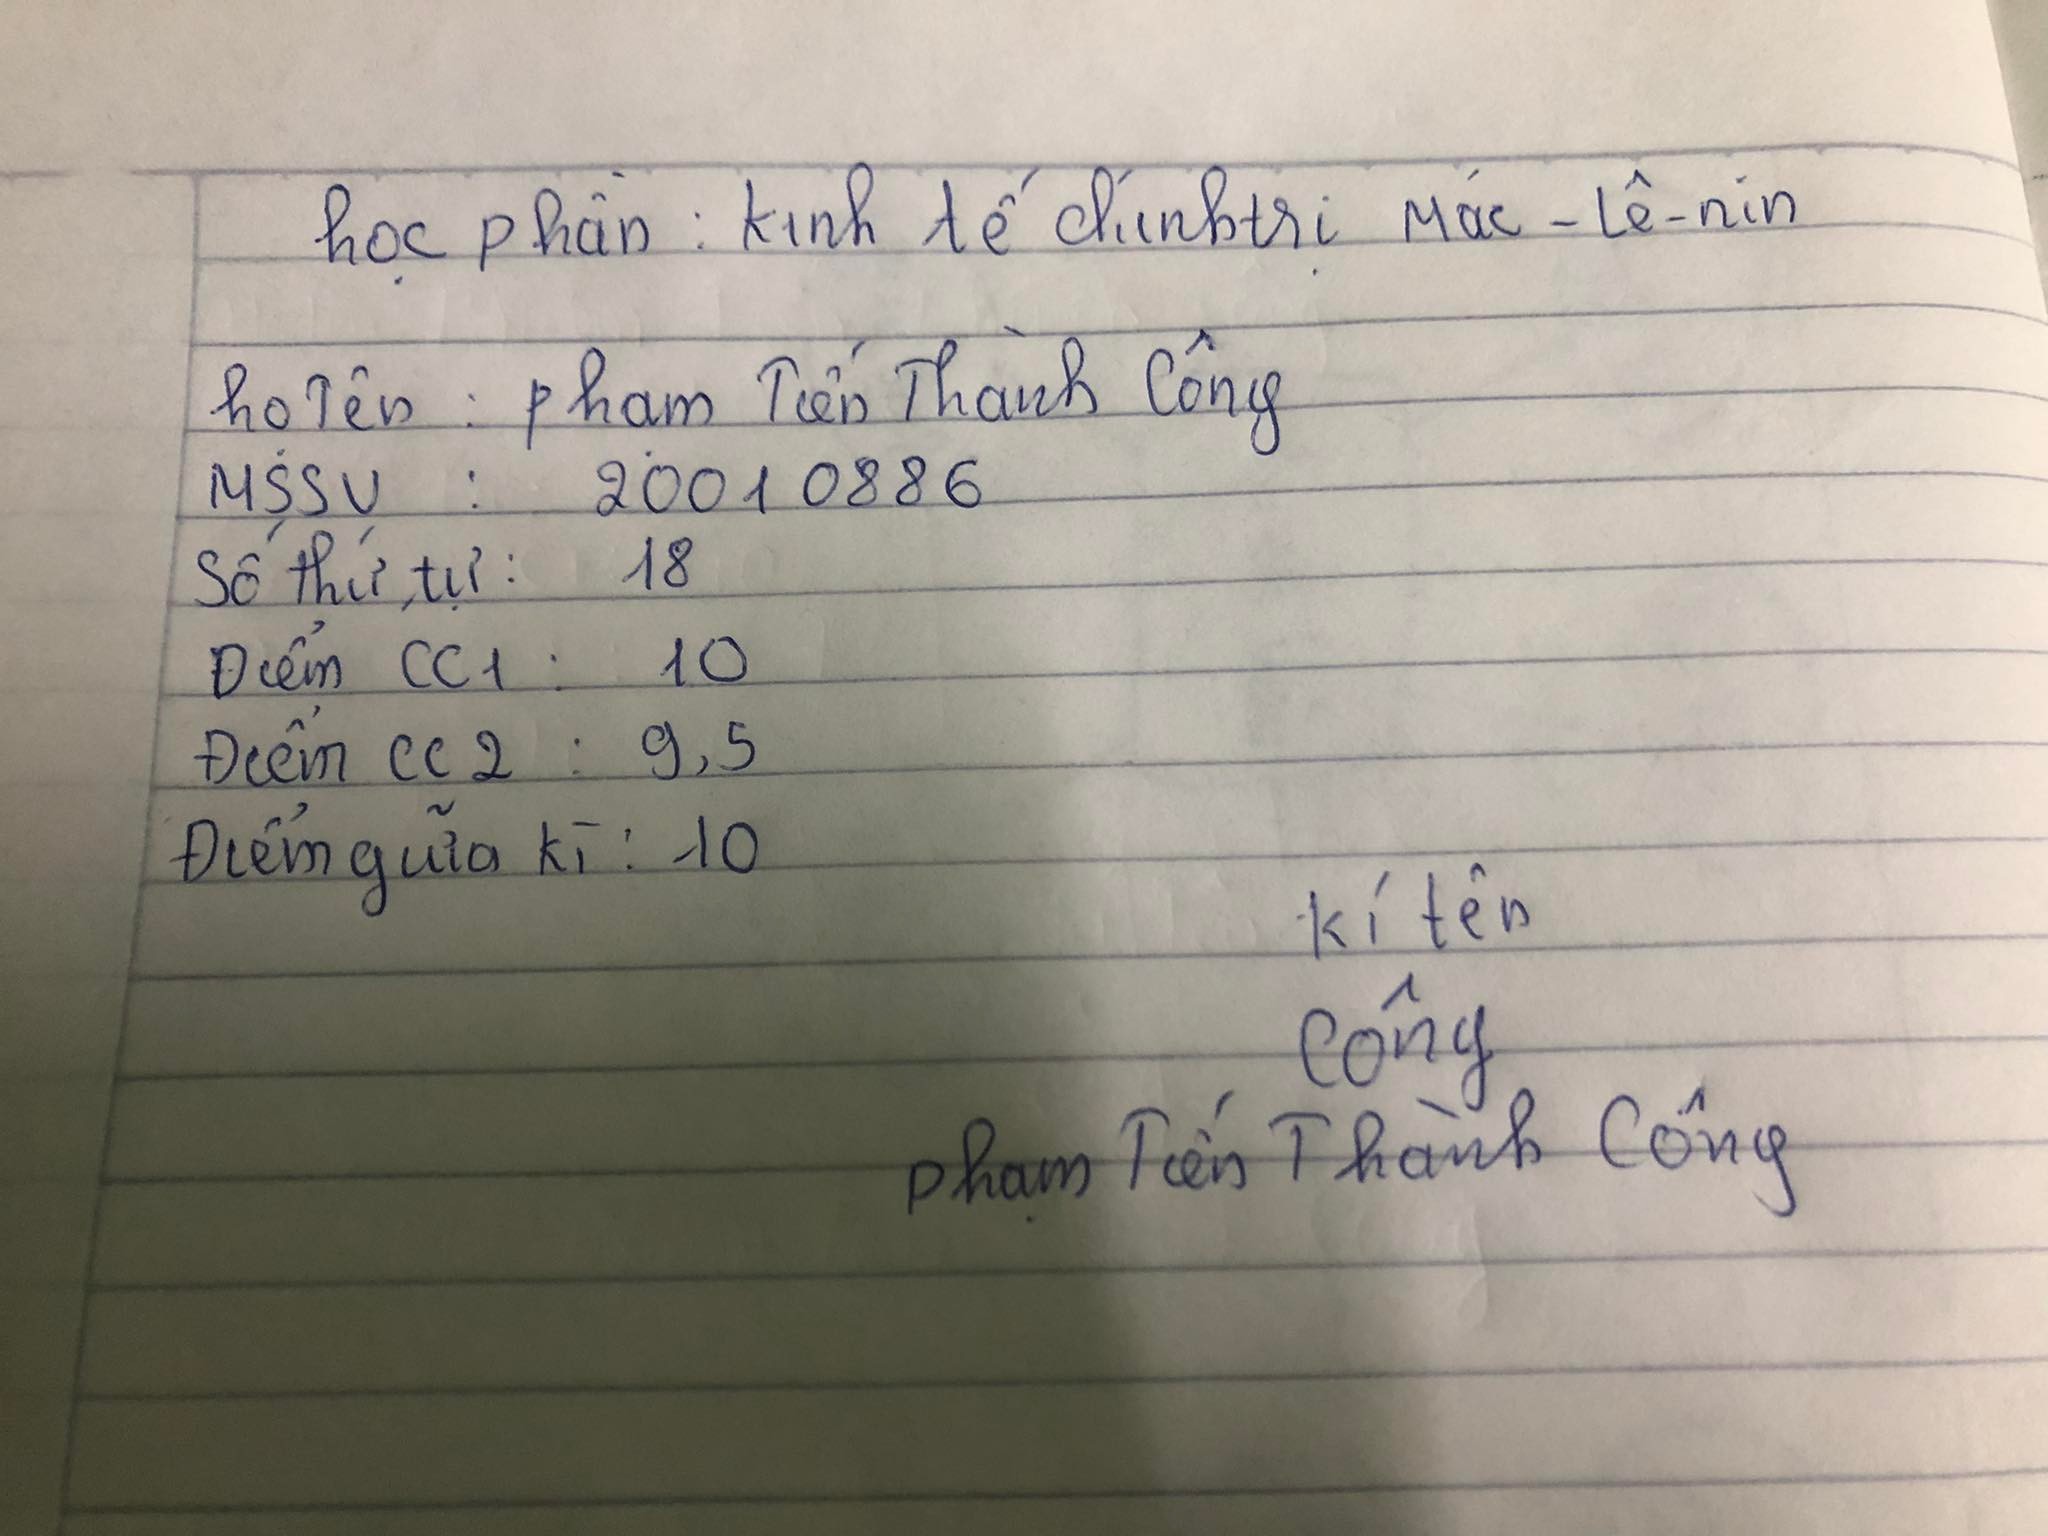 học phần : Kinh tế chính trị Mác - Lê - nin
họ Tên : phạm Tiến Thành Công
MSSV : 20010886
Số thứ tự : 18
Điểm CC1 : 10
Điểm CC2 : 9,5
Điểm giữa kì : 10
kí tên
Công
phạm Tiến Thành Công